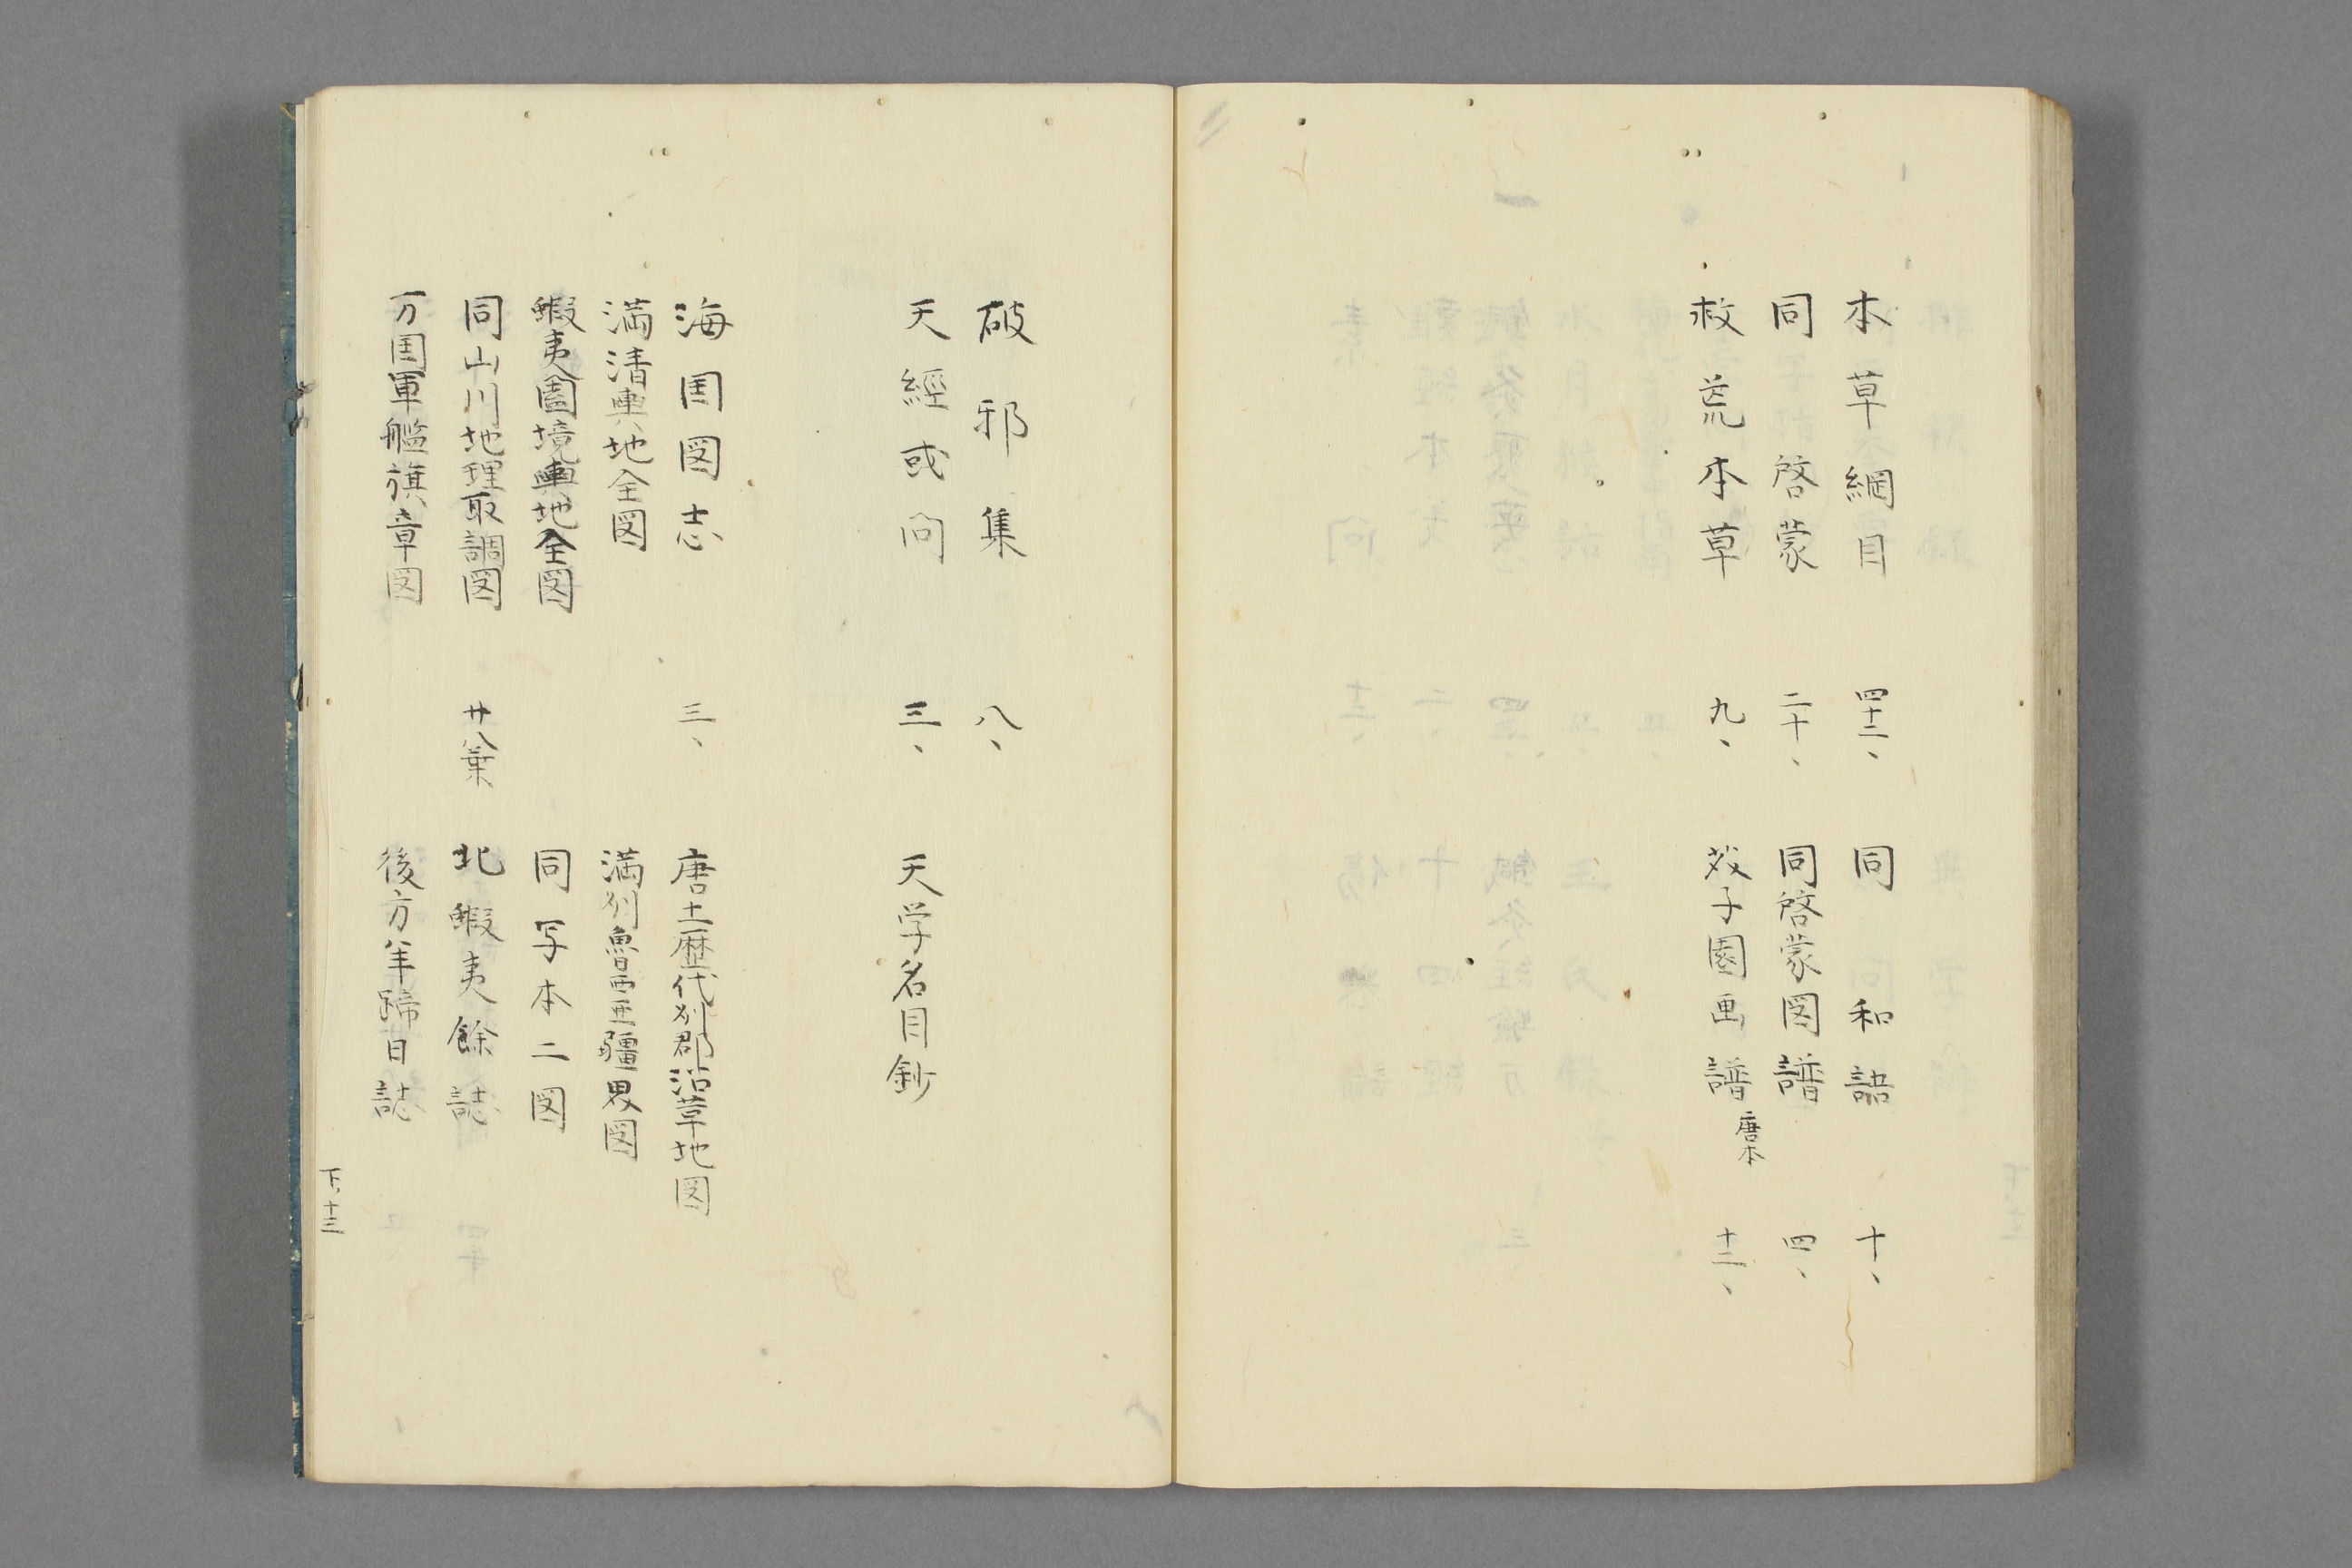 本草綱目　四十二、　同和語　十、
同啓蒙　二十、　同啓蒙図譜　四、
救荒本草　九、　芥子園画譜唐本　十二、
破邪集　八、
天經或問　三、　天学名目鈔
海国図志　三、　唐土歴代州郡沿革地図
満清輿地全図　満州魯西亜疆界図
蝦夷国境輿地全図　同写本二図
同山川地理取調図　廿八葉　北蝦夷餘誌
万国軍艦旗章図　後方羊蹄日誌
下、十三